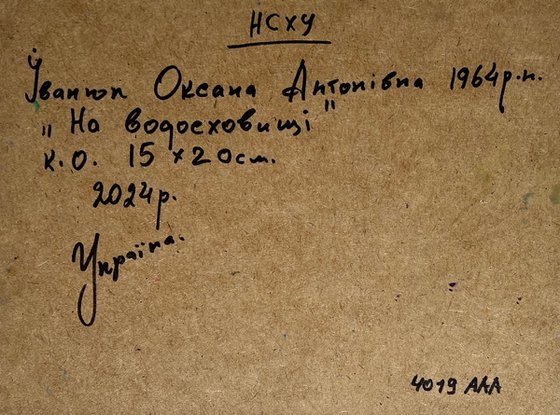 НСХУ
Іванюк Оксана Антонівна 1964р.н.
"На водосховищі"
к.о. 15×20см.
2024р.
Україна.
4019 ААА